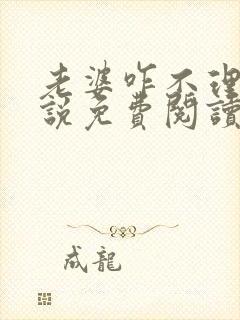 老婆咋不理
說免費閱讀
成龍